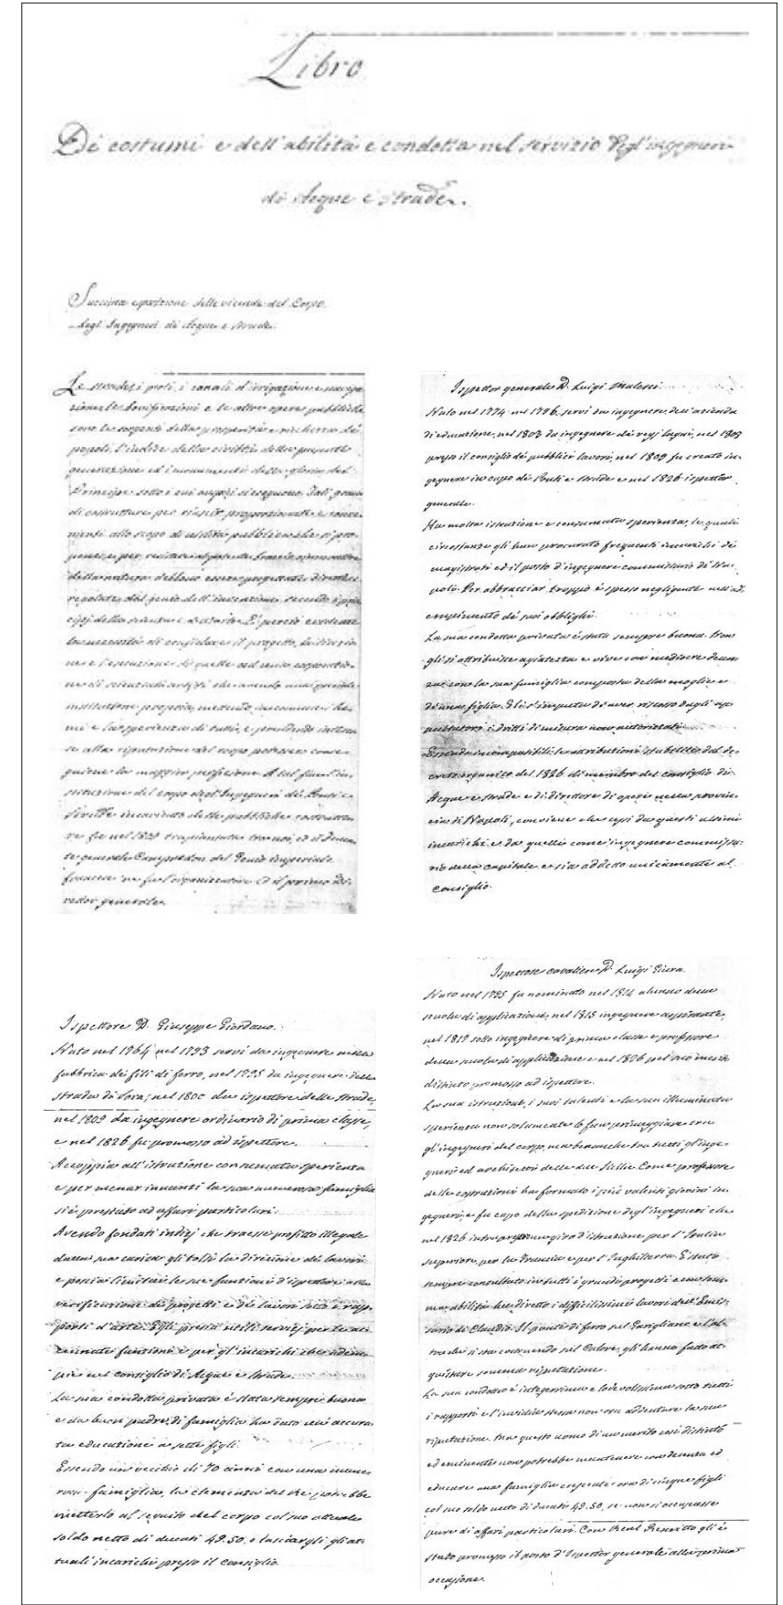 Libro
De costumi e dell'abilità e condotta nel servizio degl'ingegneri
di Acque e strade.
Succinta esposizione delle vicende del Corpo
degl'Ingegneri di Acque e strade
Le strade, i ponti, i canali d'irrigazione e naviga
zione, le bonificazioni e le altre opere pubbliche
sono le sorgenti della prosperità e ricchezza de'
popoli, l'indice della civiltà della presente
generazione ed i monumenti della gloria del
Principe sotto i cui auspicj si eseguono. Tali generi
di costruttura per riuscir proporzionate e conve
nienti allo scopo di utilità pubblica che si pro
pone, e per resistere al potente braccio
della natura debbono essere progettate dirette e
regolate dal genio dell'invenzione secondo i prin
cipj della scienza e dell'arte. È perciò evidente
la necessità di confidare il progetto, la direzio
ne e l'esecuzione di quelle ad una corporazio
ne di scienziati artisti che avendo una speciale
instituzione propria, mettendo in comune i lu
mi e la sperienza di tutti, e prendendo interes
se alla riputazione del corpo potessero conse
guirne la maggior perfezione. A tal fine l'in
stituzione del corpo degl'Ingegneri di Ponti e
strade incaricato delle pubbliche costruttu
re fu nel 1809 trapiantata tra noi, ed il
generale Campredon del Genio imperiale
francese ne fu l'organizzatore ed il primo Di
rettor generale.
Ispettor generale D. Luigi Malesci.
Nato nel 1774 nel 1796 servì da ingegnere dell'azienda
di educazione, nel 1803 da ingegnere de' regj lagni, nel 1807
presso il consiglio de' pubblici lavori, nel 1809 fu creato in
gegnere in capo di Ponti e strade e nel 1826 ispettor
generale.
Ha molta istruzione e consumata sperienza, le quali
circostanze gli han procurato frequenti incarichi de'
magistrati ed il posto d'ingegnere commissario di Na
poli. Per abbracciar troppo è spesso negligente nell'ad
empimento de' suoi obblighi.
La sua condotta privata è stata sempre buona. Non
gli si attribuisce agiatezza e vive con mediocre decen
za con la sua famiglia composta della moglie e
di una figlia. Gli s'imputa di aver riscosso dagli ap
paltatori i dritti di misura non autorizzati.
Essendo incompatibili le attribuzioni stabilite dal de
creto organico del 1826 di membro del consiglio di
Acque e strade e di direttore di opere nella provin
cia di Napoli, conviene che cessi da questi ultimi
incarichi e da quello come ingegnere commissa
rio della capitale e sia addetto unicamente al
consiglio.
Ispettore D. Giuseppe Giordano.
Nato nel 1764 nel 1793 servì da ingegnere nella
fabbrica de' fili di ferro, nel 1795 da ingegnere della
strada di Sora, nel 1800 da ispettore delle strade,
nel 1809 da ingegnere ordinario di prima classe,
e nel 1826 fu promosso ad ispettore.
Accoppia all'istruzione consumata sperienza
e per menar innanti la sua numerosa famiglia
si è prestato ad affari particolari.
Avendo fondati indizj che traesse profitto illegale
dalla sua carica gli tolsi la direzione de' lavori
e poscia limitai le sue funzioni d'ispettore alla
verificazione de' progetti e de' lavori sotto i rap
porti d'arte. Egli presta utili servizj per le ac
cennate funzioni e per gl'incarichi che adem
pie nel consiglio di Acque e strade.
La sua condotta privata è stata sempre buona
e da buon padre di famiglia ha dato una accura
ta educazione a sette figli.
Essendo un vecchio di 70 anni con una nume
rosa famiglia, la clemenza del Re potrebbe
metterlo al seguito del corpo col suo attuale
soldo netto di ducati 49.50, e lasciargli gli at
tuali incarichi presso il consiglio.
Ispettore cavaliere D. Luigi Giura.
Nato nel 1795 fu nominato nel 1812 alunno della
scuola di applicazione, nel 1815 ingegnere aspirante,
nel 1817 sotto ingegnere di prima classe e professore
della scuola di applicazione e nel 1826 pel suo merito
distinto promosso ad ispettore.
La sua istruzione, i suoi talenti e la sua illuminata
sperienza non solamente lo fan primeggiare tra
gl'ingegneri del corpo, ma benanche tra tutti gl'inge
gneri ed architetti delle due Sicilie. Come professore
delle costruzioni ha formato i più valenti giovini in
gegneri, e fu capo della spedizione degl'ingegneri che
nel 1826 intraprese un giro d'istruzione per l'Italia
superiore, per la Francia e per l'Inghilterra. È stato
sempre consultato in tutti i grandi progetti e con som
ma abilità ha diretto i difficilissimi lavori dell'Emis
sario di Claudio. Il ponte di ferro sul Garigliano e l'al
tro che si sta costruendo sul Calore, gli hanno fatto ac
quistare somma riputazione.
La sua condotta è integerrima e lodevolissima sotto tutti
i rapporti e l'invidia stessa non osa addentare la sua
riputazione. Ma questo uomo di un merito così distinto
ed eminente non potrebbe mantenere con decenza ed
educare una famiglia crescente ora di cinque figli
col suo soldo netto di ducati 49.50, se non si occupasse
pure di affari particolari. Con Real Rescritto gli è
stato promesso il posto d'Ispettor generale alla prima
occasione.